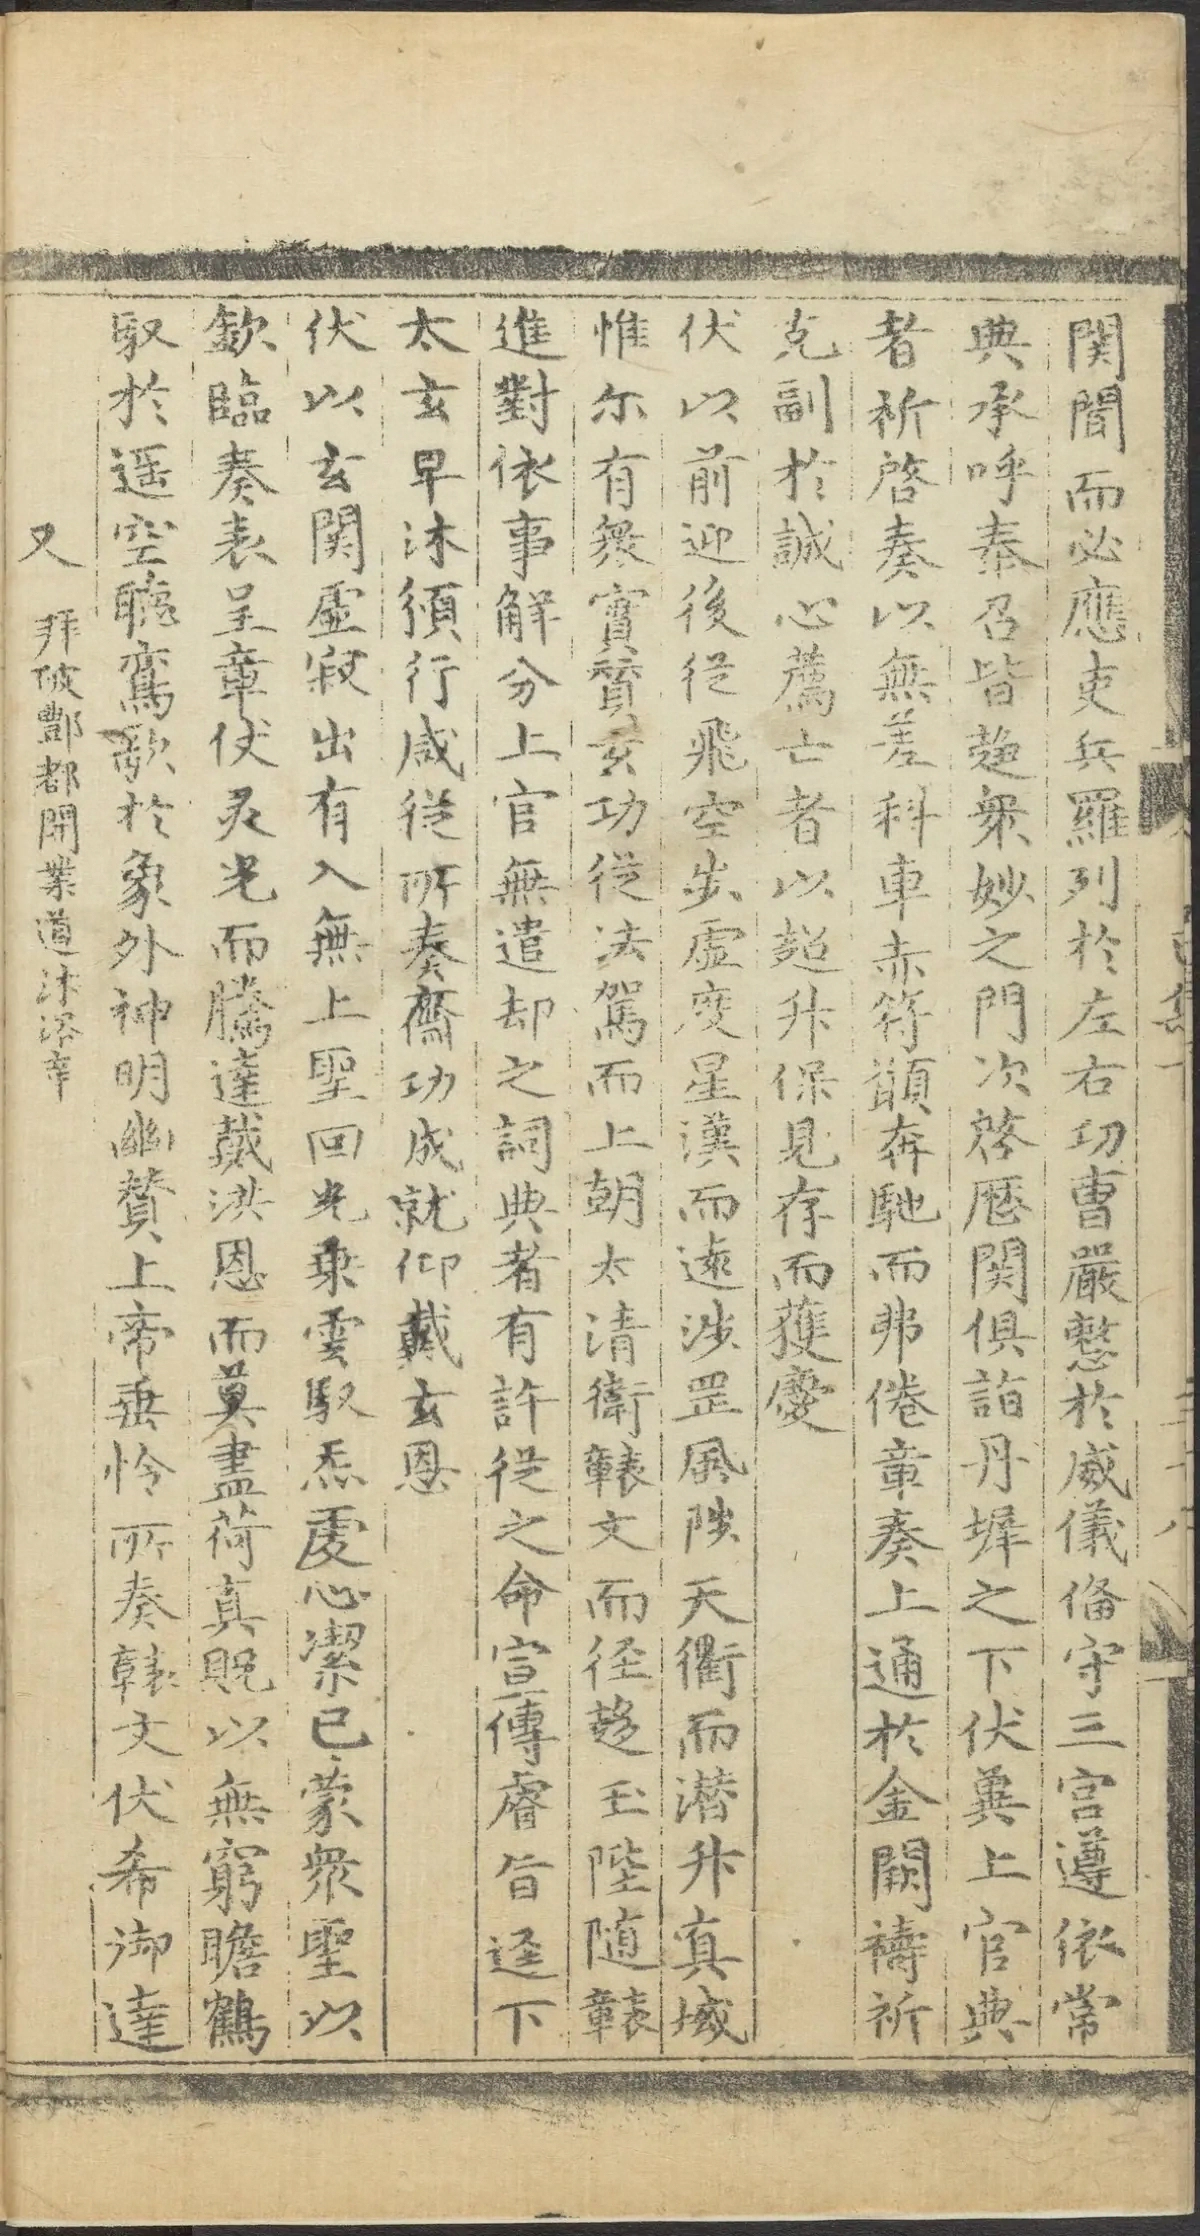 関聞而必應吏兵羅列於左右功曹嚴慗於威儀俻守三宫遵依常
典承呼奉召皆趍衆妙之門次啓歴関俱詣丹墀之下伏冀上官典
者祈啓奏以無差科車赤符顗奔馳而弗倦章奏上通於金闕禱祈
克副於誠心薦亡者以超升保見存而獲慶
伏以前迎後從飛空步虚度星漢而逺涉罡風陟天衢而潜升真域
惟尔有衆實賛玄功從法駕而上朝太清衛轅文而径趍玉陛随轅
進對依事解分上官無遣却之詞典者有許從之命宣傳睿旨逕下
太玄早沐頒行咸從所奏齋功成就仰戴玄恩
伏以玄関虚寂出有入無上聖回光乗雲馭炁虔心潔已蒙衆聖以
欽臨奏表呈章伏灵光而騰達戴洪恩而莫盡荷真貺以無窮瞻鶴
馭於遥空聴鸞歌於象外神明幽賛上帝垂怜所奏轅文伏希御達
又 拜破酆都開業道沐浴章